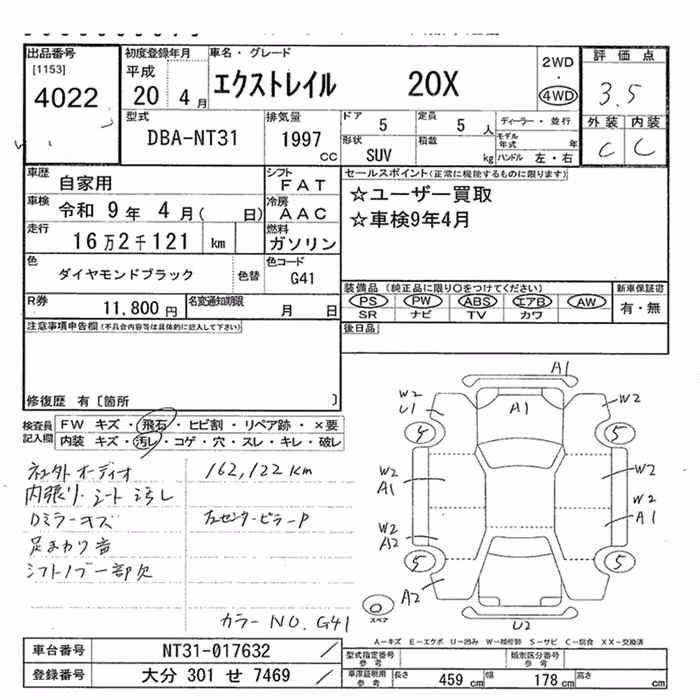 出品番号
[1153]
4022
初度登録年月
平成
20 4月
車名・グレード
エクストレイル 20X
2WD
・
4WD
評価点
3.5
外装 内装
C C
型式
DBA-NT31
排気量
1997 cc
ドア
5
定員
5 人
形状
SUV
積載
kg
ディーラー・並行
モデル年式 年
ハンドル 左・右
車歴
自家用
シフト
FAT
車検
令和 9年 4月( 日)
冷房
AAC
走行
16万2千121 km
燃料
ガソリン
色
ダイヤモンドブラック
色替
色コード
G41
R券
11,800円
名変通知期限
月 日
セールスポイント(正常に機能するものに限ります)
☆ユーザー買取
☆車検9年4月
装備品(純正品に限り○をつけてください)
PS PW ABS エアB AW
SR ナビ TV カワ
新車保証書
有・無
後日品
注意事項申告欄(不具合内容等は具体的に記入して下さい)
修復歴 有〔箇所 〕
検査員記入欄
FW キズ・飛石・ヒビ割・リペア跡・×要
内装 キズ・汚レ・コゲ・穴・スレ・キレ・破レ
オーディオ
162,122km
内張り・シート汚れ
Dミラーキズ
センターピラーP
足まわり音
シフトノブ一部欠
カラーNO. G41
A1
W2
U1
A1
W2
4
5
W2
A1
W2
W2
A1
W2
A2
5
5
A2
スペア
U2
A－キズ E－エクボ U－凹み W－補修跡 S－サビ C－腐食 XX－交換済
車台番号
NT31-017632
登録番号
大分 301 せ 7469
型式指定番号
参考
類別区分番号
参考
車庫証明用
参考
長さ 459 cm
幅 178 cm
高さ cm